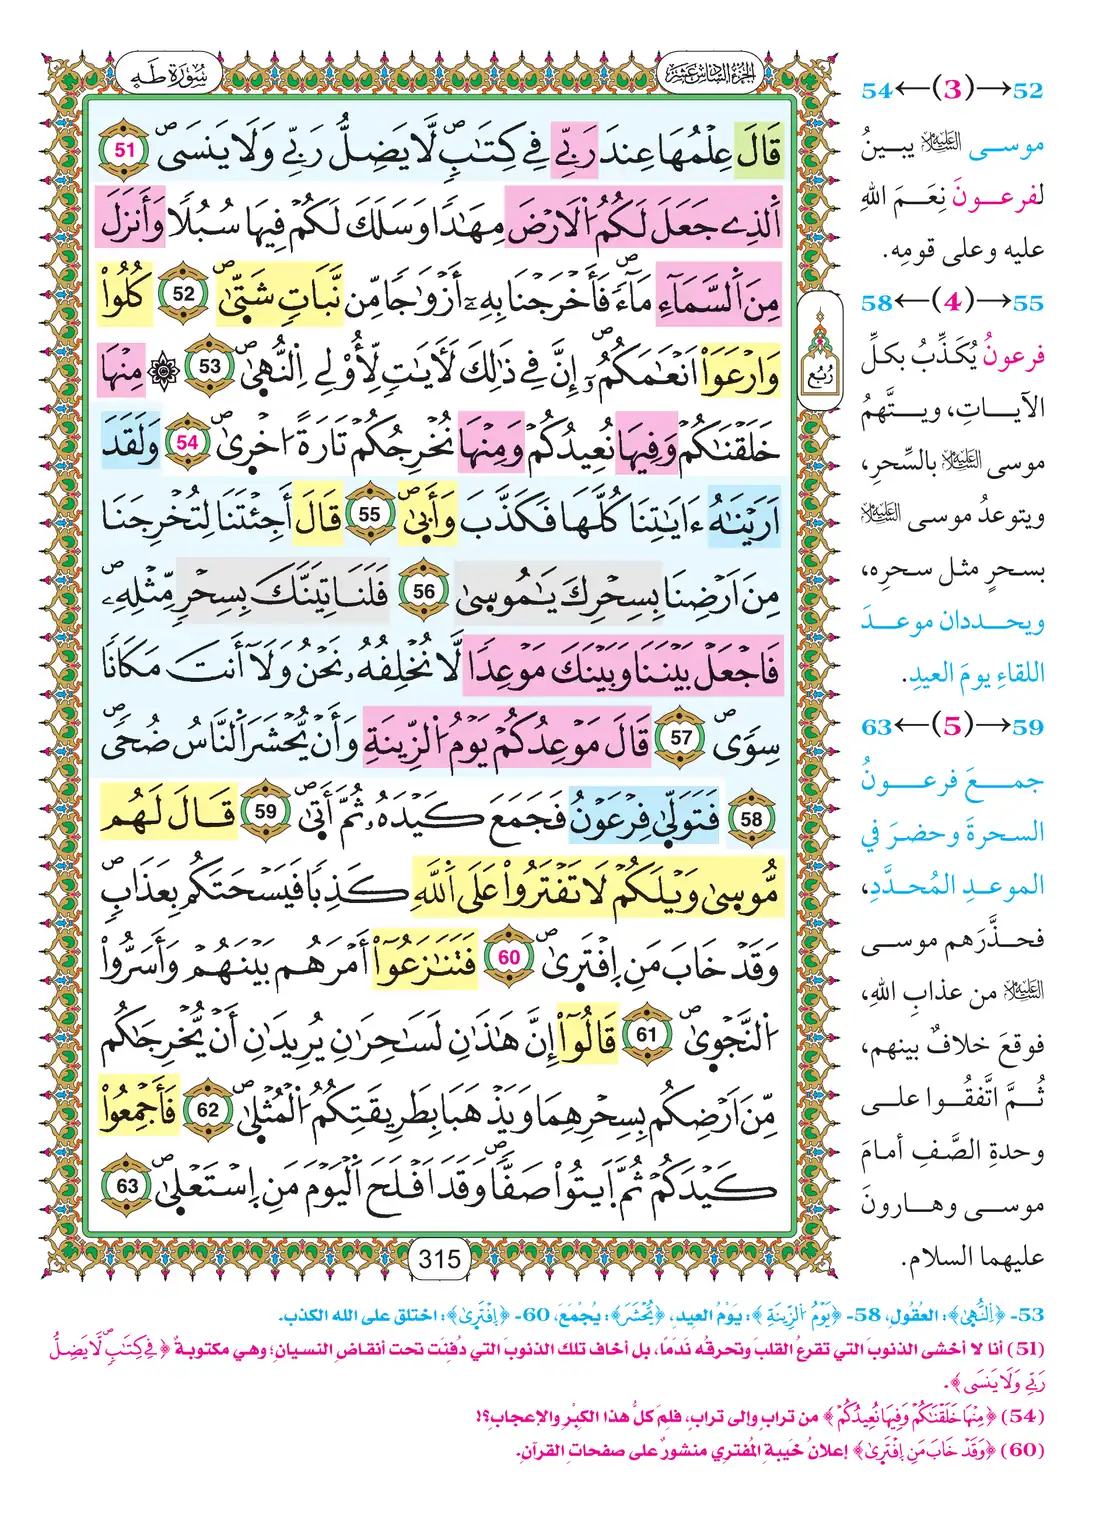 سُورَةُ طَهَ
الجُزْءُ السَّادِسَ عَشَرَ
قَالَ عِلْمُهَا عِندَ رَبِّے فِے كِتَٰبٍ لَّا يَضِلُّ رَبِّے وَلَا يَنسَى 51
اَ۬لذِے جَعَلَ لَكُمُ اُ۬لَارْضَ مِهَٰداً وَسَلَكَ لَكُمْ فِيهَا سُبُلًا وَأَنزَلَ
مِنَ اَ۬لسَّمَآءِ مَآءً فَأَخْرَجْنَا بِهِۦٓ أَزْوَٰجاً مِّن نَّبَاتٍ شَتَّىٰ 52 كُلُواْ
وَارْعَوَاْ اَنْعَٰمَكُمُۥٓ إِنَّ فِے ذَٰلِكَ لَأٓيَٰتٍ لِّأُوْلِے اِ۬لنُّهَىٰ 53 ۞ مِنْهَا
خَلَقْنَٰكُمْ وَفِيهَا نُعِيدُكُمْ وَمِنْهَا نُخْرِجُكُمْ تَارَةً اُخْرَىٰ 54 وَلَقَدَ
اَرَيْنَٰهُ ءَايَٰتِنَا كُلَّهَا فَكَذَّبَ وَأَبَىٰ 55 قَالَ أَجِئْتَنَا لِتُخْرِجَنَا
مِنَ اَرْضِنَا بِسِحْرِكَ يَٰمُوسَىٰ 56 فَلَنَاتِيَنَّكَ بِسِحْرٍ مِّثْلِهِۦ
فَاجْعَلْ بَيْنَنَا وَبَيْنَكَ مَوْعِداً لَّا نُخْلِفُهُۥ نَحْنُ وَلَآ أَنتَ مَكَاناً
سِوىً 57 قَالَ مَوْعِدُكُمْ يَوْمُ اُ۬لزِّينَةِ وَأَنْ يُّحْشَرَ اَ۬لنَّاسُ ضُحىً
58 فَتَوَلَّىٰ فِرْعَوْنُ فَجَمَعَ كَيْدَهُۥ ثُمَّ أَتَىٰ 59 قَالَ لَهُم
مُّوسَىٰ وَيْلَكُمْ لَا تَفْتَرُواْ عَلَى اَ۬للَّهِ كَذِباً فَيَسْحَتَكُم بِعَذَابٍ
وَقَدْ خَابَ مَنِ اِ۪فْتَرَىٰ 60 فَتَنَٰزَعُوٓاْ أَمْرَهُم بَيْنَهُمْ وَأَسَرُّواْ
اُ۬لنَّجْوَىٰ 61 قَالُوٓاْ إِنَّ هَٰذَٰنِ لَسَٰحِرَٰنِ يُرِيدَٰنِ أَنْ يُّخْرِجَٰكُم
مِّنَ اَرْضِكُم بِسِحْرِهِمَا وَيَذْهَبَا بِطَرِيقَتِكُمُ اُ۬لْمُثْلَىٰ 62 فَأَجْمِعُواْ
كَيْدَكُمْ ثُمَّ اَ۪يتُواْ صَفّاً وَقَدَ اَفْلَحَ اَ۬لْيَوْمَ مَنِ اِ۪سْتَعْلَىٰ 63
رُبُع
315
52→(3)←54
موسى عليه السلام يبينُ
لفرعونَ نِعَمَ اللهِ
عليه وعلى قومِه.
55→(4)←58
فرعونُ يُكَذِّبُ بكلِّ
الآياتِ، ويتَّهمُ
موسى عليه السلام بالسِّحرِ،
ويتوعدُ موسى عليه السلام
بسحرٍ مثل سحرِه،
ويحددان موعدَ
اللقاءِ يومَ العيدِ.
59→(5)←63
جمعَ فرعونُ
السحرةَ وحضرَ في
الموعدِ المُحدَّدِ،
فحذَّرَهم موسى
عليه السلام من عذابِ اللهِ،
فوقعَ خلافٌ بينهم،
ثُمَّ اتَّفقُوا على
وحدةِ الصَّفِ أمامَ
موسى وهارونَ
عليهما السلام.
53- ﴿اِ۬لنُّهَىٰ﴾: العُقُولِ، 58- ﴿يَوْمُ اُ۬لزِّينَةِ﴾: يَوْمُ العيدِ، ﴿يُّحْشَرَ﴾: يُجْمَعَ، 60- ﴿اِ۪فْتَرَىٰ﴾: اختلق على الله الكذب.
(51) أنا لا أخشى الذنوبَ التي تقرعُ القلبَ وتحرقُه نَدَمًا، بل أخاف تلك الذنوبَ التي دُفِنَت تحت أنقاضِ النسيانِ؛ وهي مكتوبةٌ ﴿فِے كِتَٰبٍ لَّا يَضِلُّ
رَبِّے وَلَا يَنسَى﴾.
(54) ﴿مِنْهَا خَلَقْنَٰكُمْ وَفِيهَا نُعِيدُكُمْ﴾ من ترابٍ وإلى ترابٍ، فلِمَ كلُّ هذا الكِبْرِ والإعجابِ؟!
(60) ﴿وَقَدْ خَابَ مَنِ اِ۪فْتَرَىٰ﴾ إعلانُ خَيبةِ المُفتري منشورٌ على صفحاتِ القرآنِ.